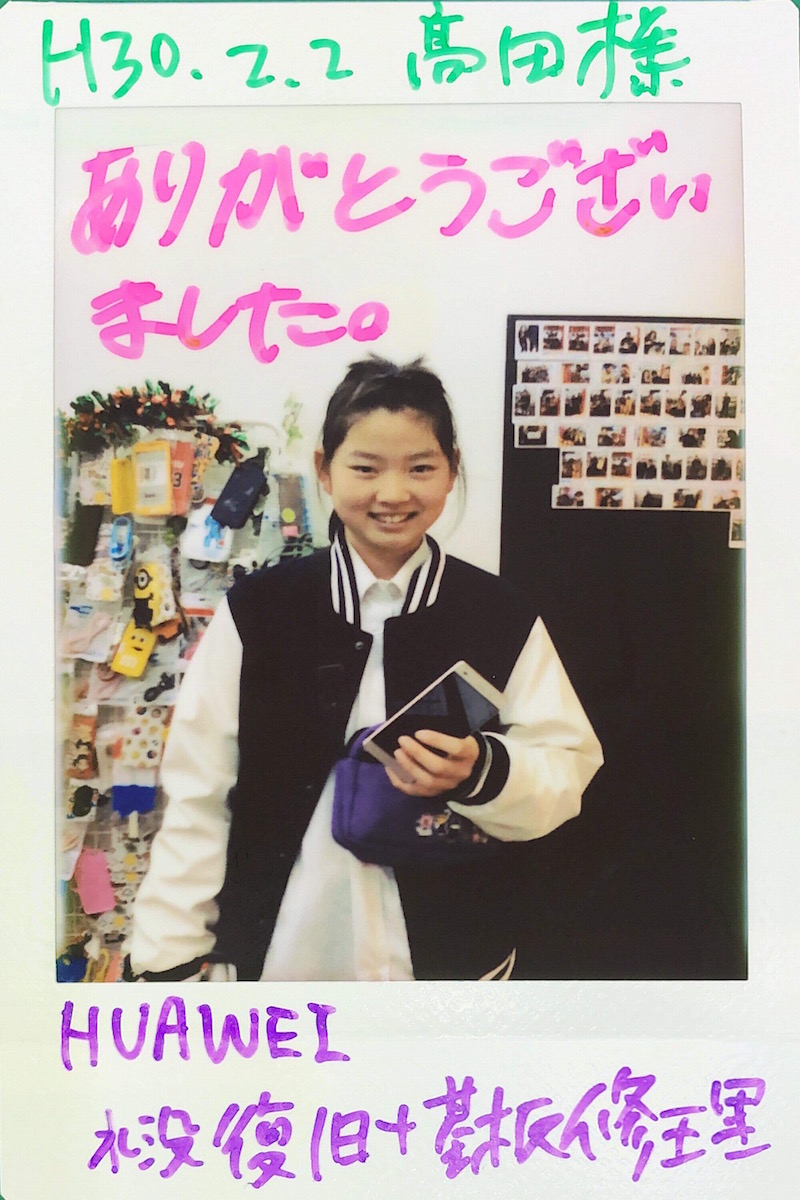 H30.2.2 髙田様
ありがとうござい
ました。
HUAWEI
水没復旧+基板修理